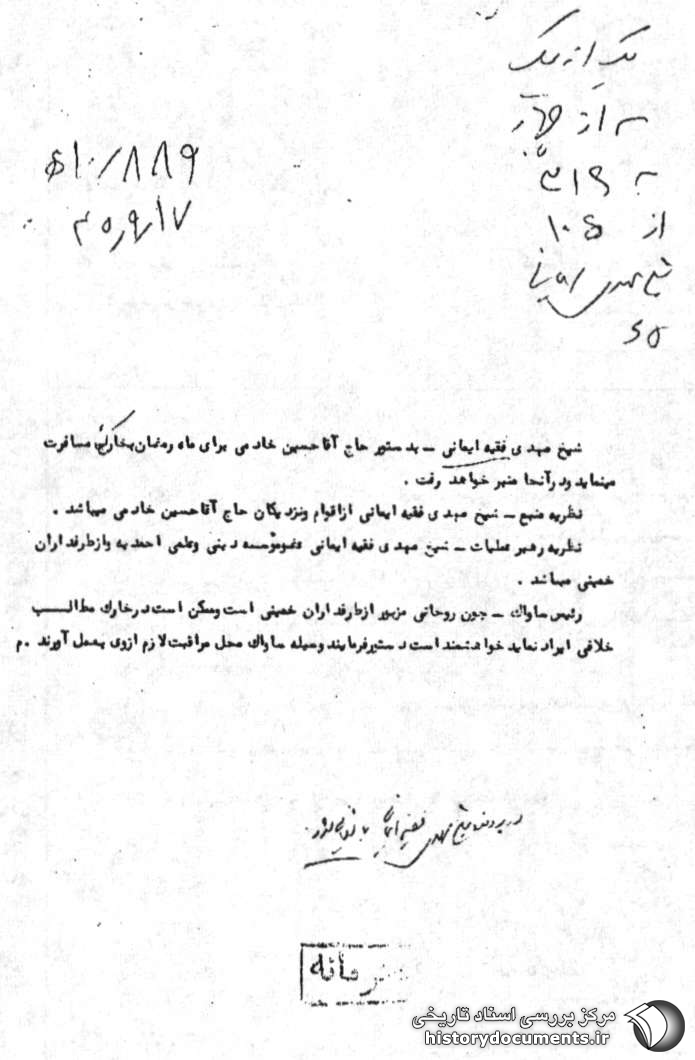 یک از یک
به از چهار
به ۳۱۶
از ۱۰۵
شیخ مهدی
۵۱۰/۸۸۹
۳۵٫۹٫۱۷
شیخ مهدی فقیه ایمانی – بدستور حاج آقاحسین خادمی برای ماه رمضان بخارک مسافرت
مینماید ودرآنجا منبر خواهد رفت .
نظریه منبع – شیخ مهدی فقیه ایمانی ازاقوام ونزدیکان حاج آقاحسین خادمی میباشد .
نظریه رهبر عملیات – شیخ مهدی فقیه ایمانی عضوموٴسسه دینی وعلمی احمدیه وازطرفداران
خمینی میباشد .
رئیس ساواک – چون روحانی مزبور ازطرفداران خمینی است وممکن است درخارك مطالب
خلافی ایراد نماید خواهشمنداست دستورفرمایند وسیله ساواك محل مراقبت لازم ازوی بعمل آورند .م
در پرونده شیخ مهدی فقیه ایمانی بایگانی شود
محرمانه
مرکز بررسی اسناد تاریخی
historydocuments.ir